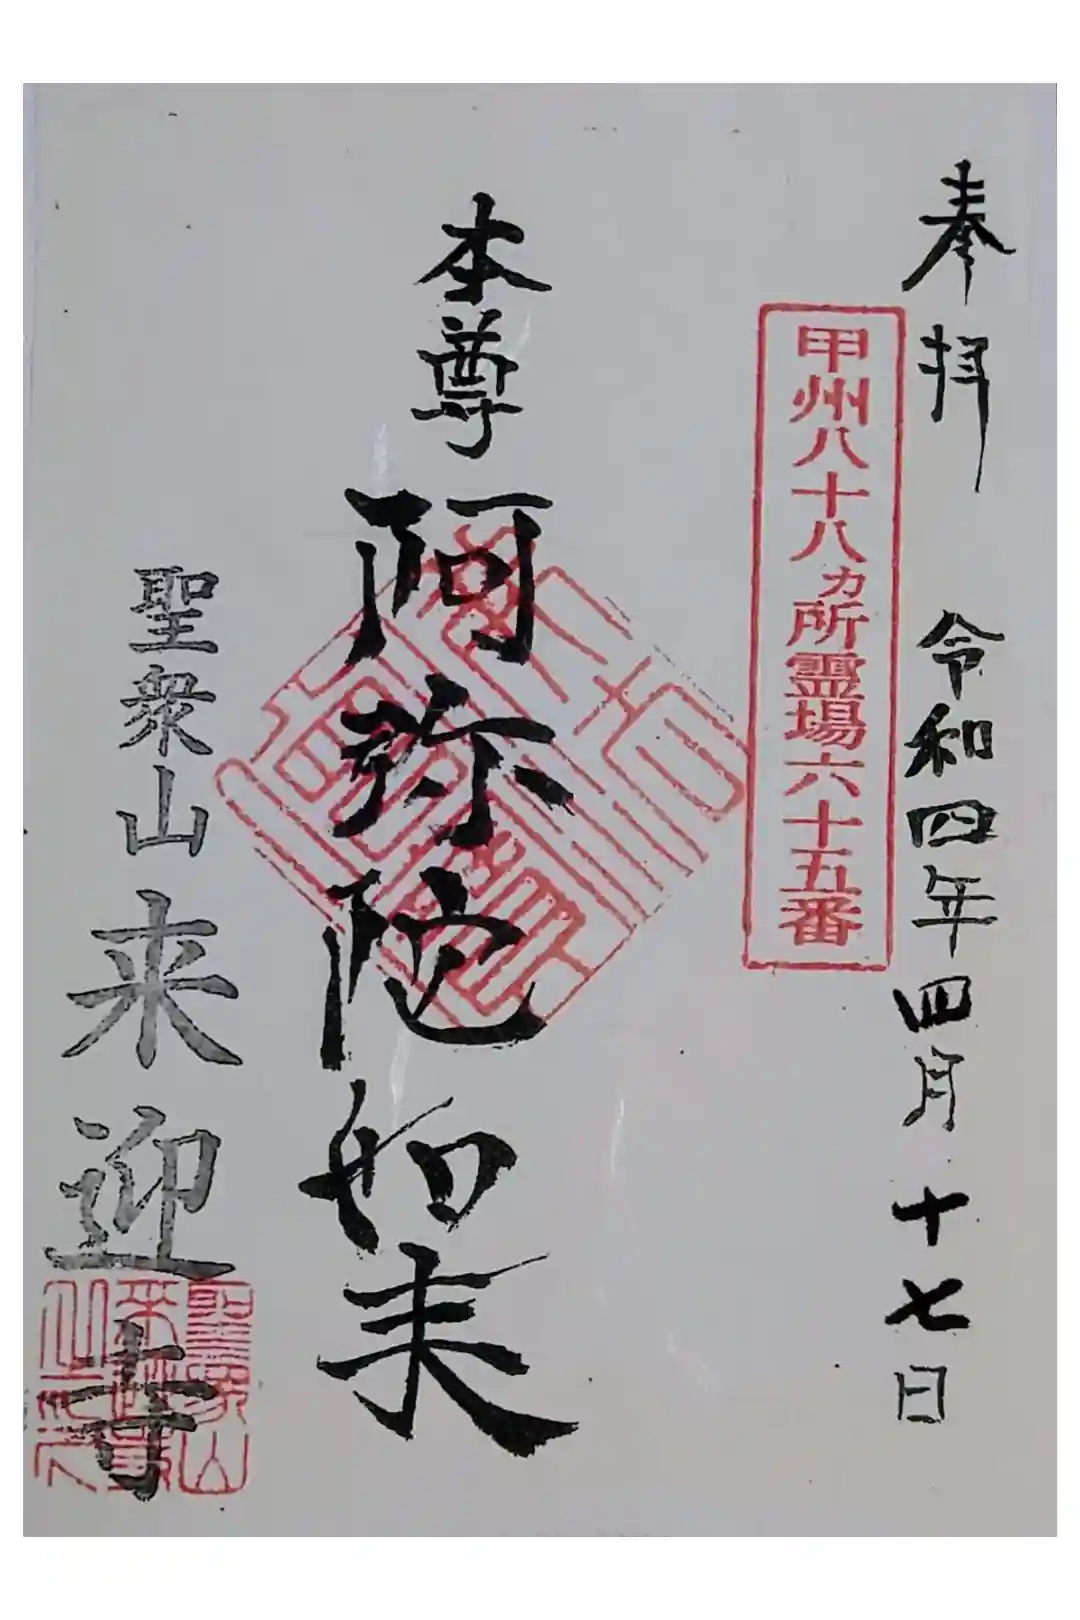 奉拝
令和四年四月十七日
甲州八十八カ所霊場六十五番
本尊
阿弥陀如来
聖衆山
来迎寺